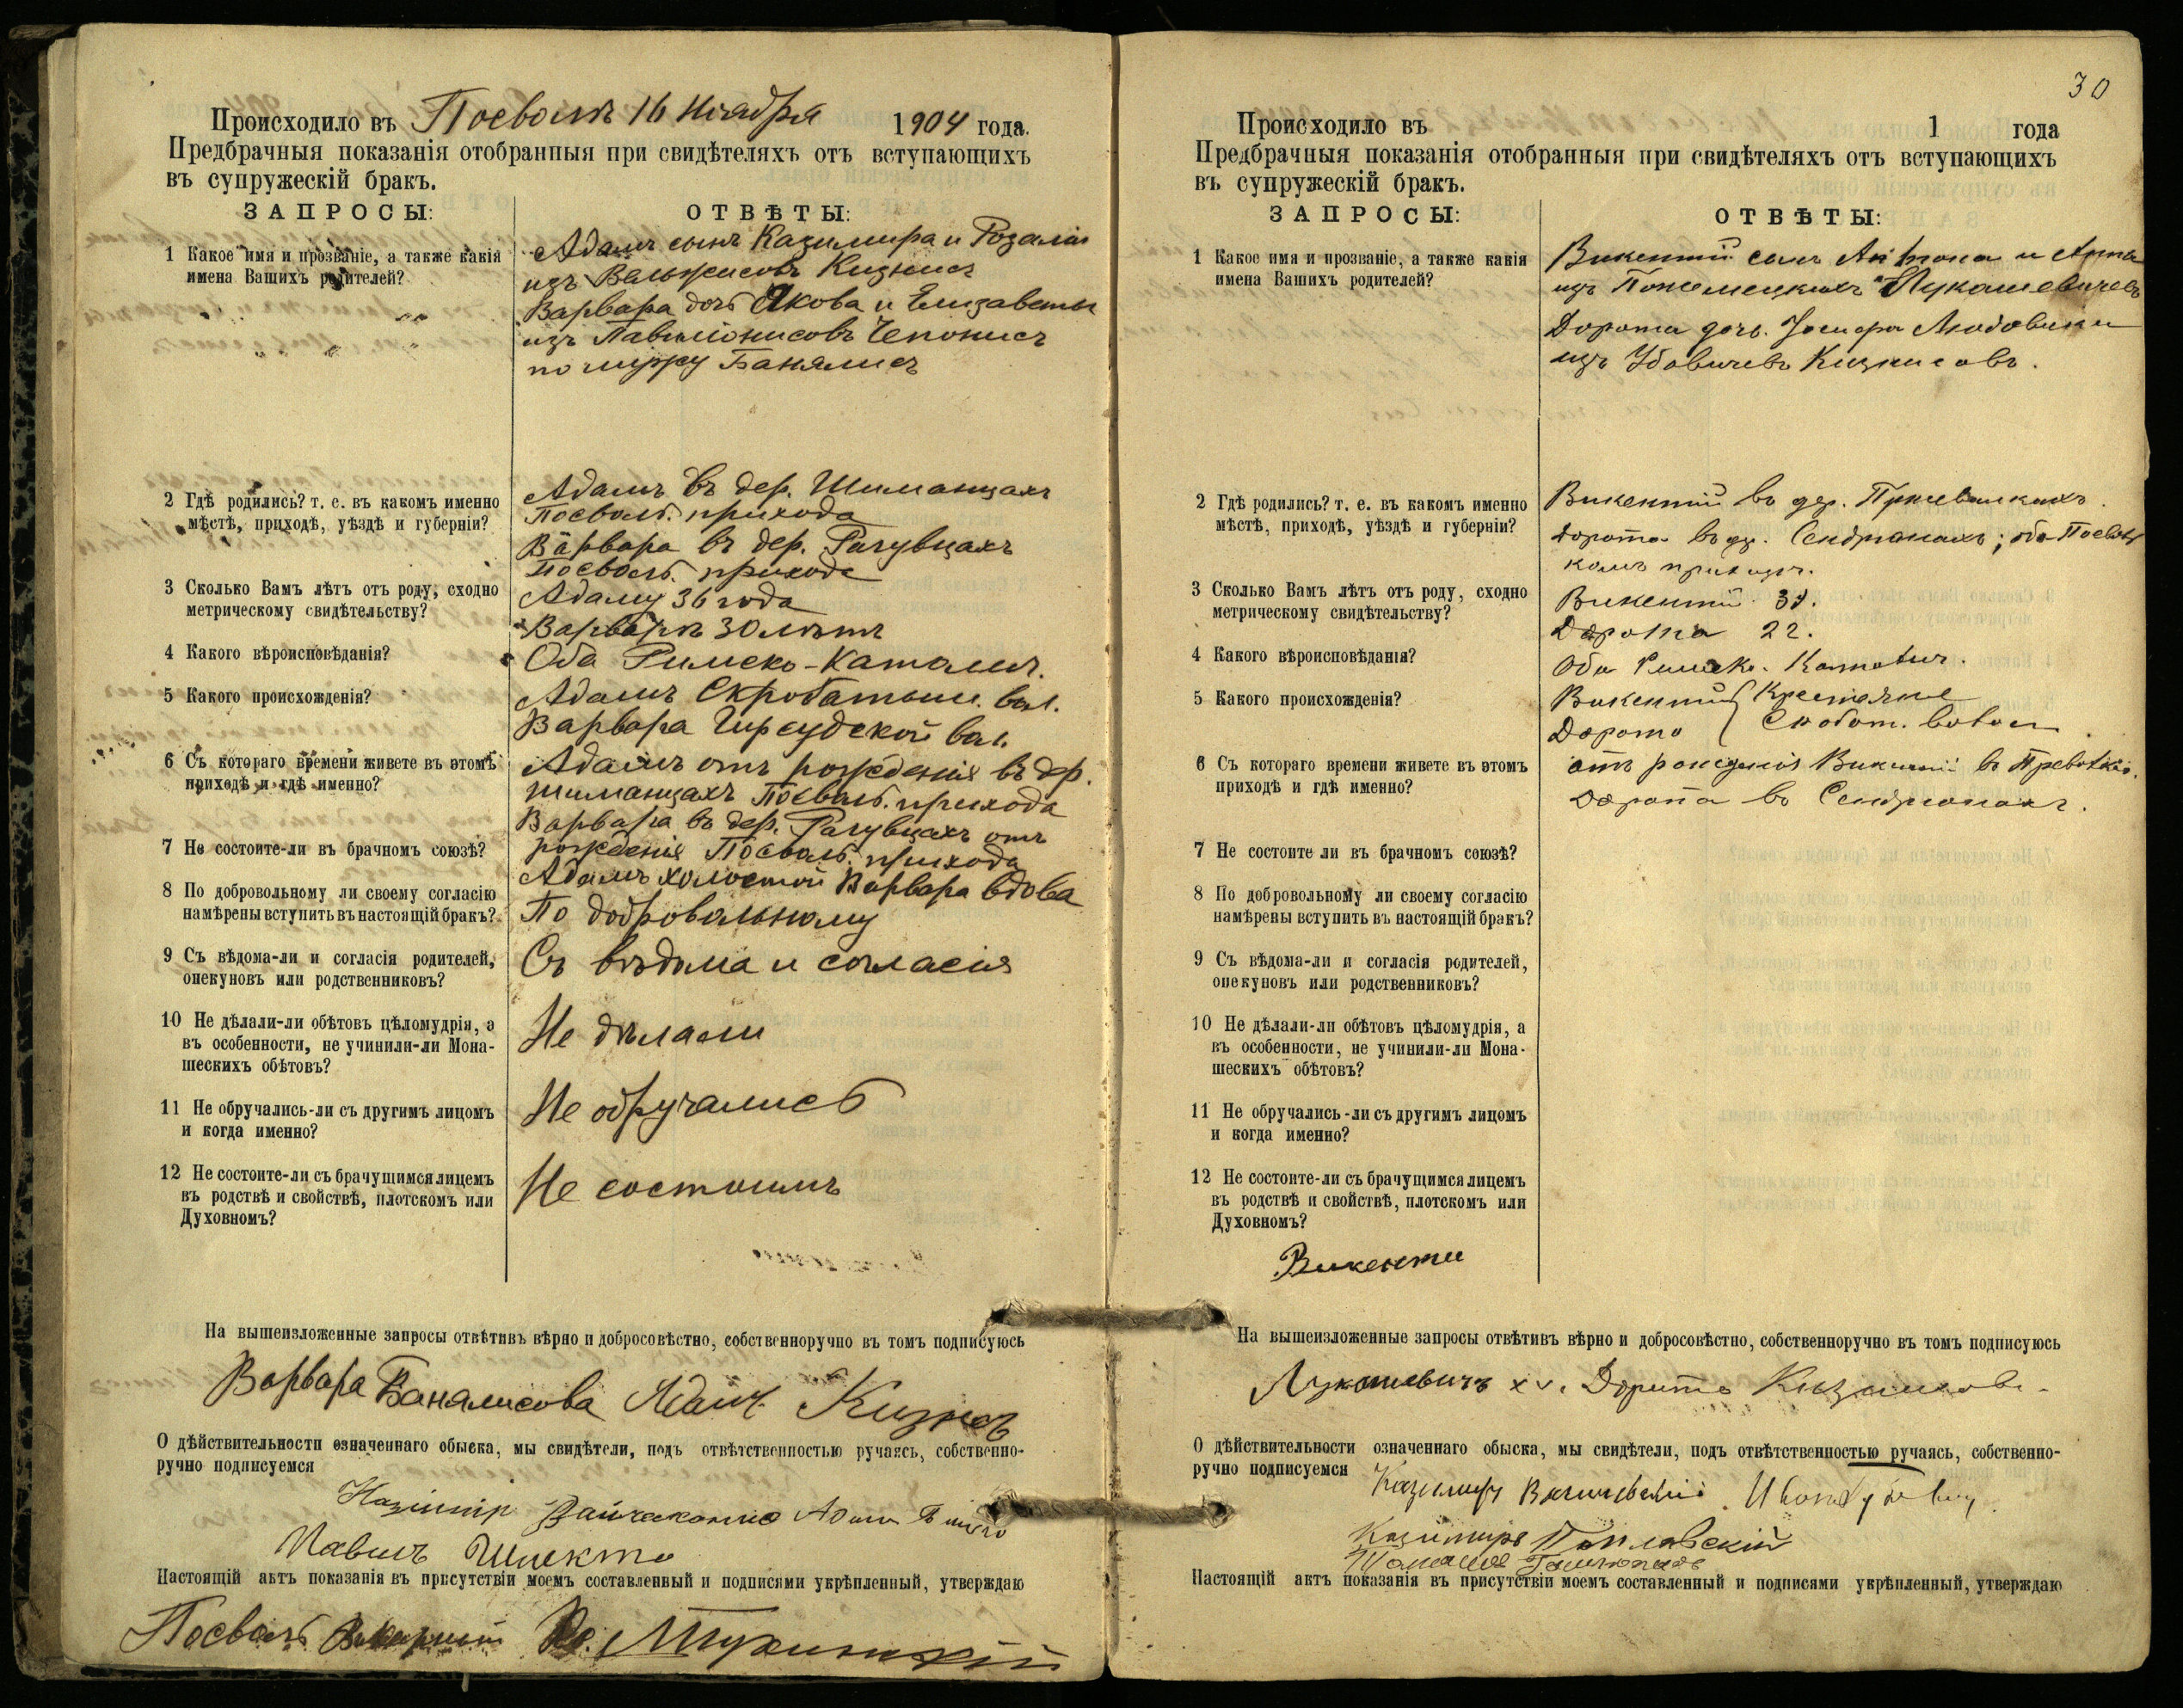 Происходило въ Поеволѣ 16 Ноября 1904 года.
Предбрачныя показанія отобранныя при свидѣтеляхъ отъ вступающихъ
въ супружескій бракъ.
ЗАПРОСЫ:
ОТВѢТЫ:
1 Какое имя и прозваніе, а также какія
имена Вашихъ родителей?
Адамъ сынъ Казимира и Розаліи
изъ Кизнисъ
Варвара дочь Якова и Елизаветы
изъ Чепонисъ
по мужу Банялисъ
2 Гдѣ родились? т. е. въ какомъ именно
мѣстѣ, приходѣ, уѣздѣ и губерніи?
Адамъ въ дер. Шиманцахъ
Поевол. прихода
Варвара въ дер. Рагувцахъ
Поевол. прихода
3 Сколько Вамъ лѣтъ отъ роду, сходно
метрическому свидѣтельству?
Адаму 36 года
Варварѣ 30 лѣтъ
4 Какого вѣроисповѣданія?
Оба Римско-Католич.
5 Какого происхожденія?
Адамъ Скробатыш. вол.
Варвара Гирсудской вол.
6 Съ котораго времени живете въ этомъ
приходѣ и гдѣ именно?
Адамъ отъ рожденія въ дер.
Шиманцахъ Поевол. прихода
Варвара въ дер. Рагувцахъ отъ
рожденія Поевол. прихода
7 Не состоите-ли въ брачномъ союзѣ?
Адамъ холостой Варвара вдова
8 По добровольному ли своему согласію
намѣрены вступить въ настоящій бракъ?
По добровольному
9 Съ вѣдома-ли и согласія родителей,
опекуновъ или родственниковъ?
Съ вѣдома и согласія
10 Не дѣлали-ли обѣтовъ цѣломудрія, а
въ особенности, не учинили-ли Мона-
шескихъ обѣтовъ?
Не дѣлали
11 Не обручались-ли съ другимъ лицомъ
и когда именно?
Не обручались
12 Не состоите-ли съ брачущимся лицемъ
въ родствѣ и свойствѣ, плотскомъ или
Духовномъ?
Не состоимъ
На вышеизложенные запросы отвѣтивъ вѣрно и добросовѣстно, собственноручно въ томъ подписуюсь
Варвара Банялисова Адамъ Кизнсъ
О дѣйствительности означеннаго обыска, мы свидѣтели, подъ отвѣтственностью ручаясь, собственно-
ручно подписуемся
Павилъ Шлекто
Настоящій актъ показанія въ присутствіи моемъ составленный и подписями укрѣпленный, утверждаю
Поевол. Викарный Кс.
30
Происходило въ 1 года
Предбрачныя показанія отобранныя при свидѣтеляхъ отъ вступающихъ
въ супружескій бракъ.
ЗАПРОСЫ:
ОТВѢТЫ:
1 Какое имя и прозваніе, а также какія
имена Вашихъ родителей?
Викентій сынъ Антона и Анны
изъ Лукашевичевъ
Дорота дочь Іосифа Людовики
изъ Кизнисовъ.
2 Гдѣ родились? т. е. въ какомъ именно
мѣстѣ, приходѣ, уѣздѣ и губерніи?
Викентій въ дер.
Дорота въ др. Сендрюнахъ; оба Поеволь
комъ приходѣ.
3 Сколько Вамъ лѣтъ отъ роду, сходно
метрическому свидѣтельству?
Викентій
Дорота 22.
4 Какого вѣроисповѣданія?
Оба Римско. Католич.
5 Какого происхожденія?
Викентій Крестьяне
Дорота волос
6 Съ котораго времени живете въ этомъ
приходѣ и гдѣ именно?
отъ рожденія Викентій въ
Дорота въ Сендрюнахъ.
7 Не состоите ли въ брачномъ союзѣ?
8 По добровольному ли своему согласію
намѣрены вступить въ настоящій бракъ?
9 Съ вѣдома-ли и согласія родителей,
опекуновъ или родственниковъ?
10 Не дѣлали-ли обѣтовъ цѣломудрія, а
въ особенности, не учинили-ли Мона-
шескихъ обѣтовъ?
11 Не обручались-ли съ другимъ лицомъ
и когда именно?
12 Не состоите-ли съ брачущимся лицемъ
въ родствѣ и свойствѣ, плотскомъ или
Духовномъ?
Викенти
На вышеизложенные запросы отвѣтивъ вѣрно и добросовѣстно, собственноручно въ томъ подписуюсь
Лукошевичъ Дорота
О дѣйствительности означеннаго обыска, мы свидѣтели, подъ отвѣтственностью ручаясь, собственно-
ручно подписуемся
Казимиръ
Казимиръ
Настоящій актъ показанія въ присутствіи моемъ составленный и подписями укрѣпленный, утверждаю